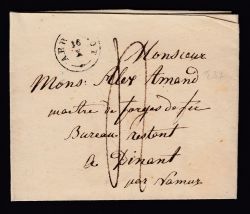 Monsieur
Mons: Alex Amand
maitre de forges de fer
Bureau restant
a Dinant
par Namur
16